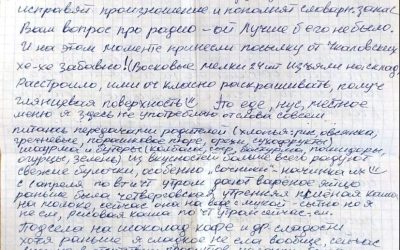 исправят произношение и пополнят словарн. запас
Ваш вопрос про радио – ой Лучше б его не было.
И на этом моменте принесли посылку от
хе-хе забавно! (Восковые мелки 24 шт Изъяли на склад,
Расстроило, ими оч классно раскрашивать, получ
глянцевая поверхность Это еде, нус, местное
меню я здесь не употребляю от слова совсем
питаюсь передачами родителей (хлопья: рис, овсянка,
гречневые, картофельное пюре, орехи, сухофрукты)
и йогурты (колбаски, сыр, помидоры,
огурцы, зелень). Из вкусностей больше всего радуют
свежие булочки, особенно "сочник" – начинка их
с 1 апреля по вт и чт утром дают варёное яйцо
раньше была четверговская, утренняя пшённая каша
на молоке, сейчас она на воде с мукой – сытно но я
не ем, рисовая каша по чт утром сейчас – ем.
Подсела на шоколад, кофе и др. сладости
хотя раньше я сладкое не ела вообще, сейчас